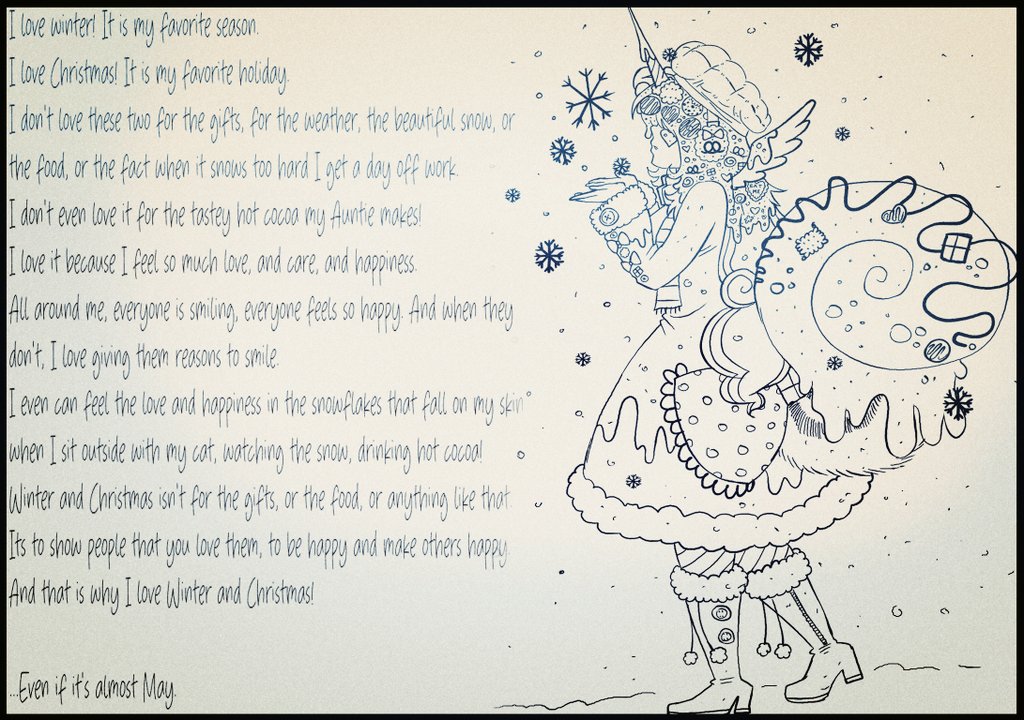 I love winter! It is my favorite season.
I love Christmas! It is my favorite holiday.
I don't love these two for the gifts, for the weather, the beautiful snow, or
the food, or the fact when it snows too hard I get a day off work.
I don't even love it for the tastey hot cocoa my Auntie makes!
I love it because I feel so much love, and care, and happiness.
All around me, everyone is smiling, everyone feels so happy. And when they
don't, I love giving them reasons to smile.
I even can feel the love and happiness in the snowflakes that fall on my skin
when I sit outside with my cat, watching the snow, drinking hot cocoa!
Winter and Christmas isn't for the gifts, or the food, or anything like that.
Its to show people that you love them, to be happy and make others happy.
And that is why I love Winter and Christmas!
...Even if it's almost May.